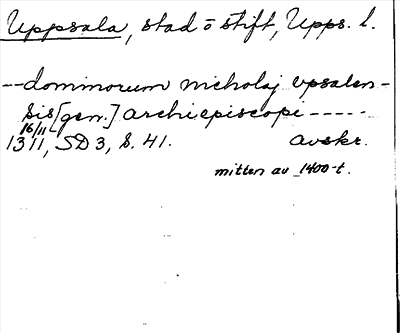 Uppsala, stad o stift, Upps. l.
--dominorum nicholaj vpsalen-
sis [gen.] archiepiscopi -----
16/11
1311, SD 3, S. 41. avskr.
mitten av 1400-t.